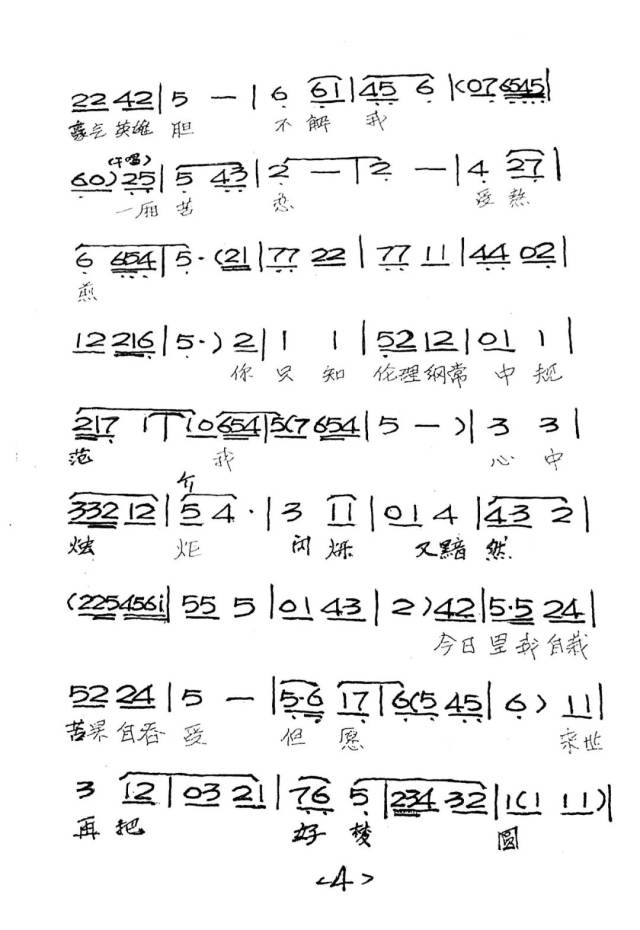 22 42 | 5 — | 6 61 | 45 6 | (07 6545 |
豪气英雄 胆 不 解 我
(干唱)
60) 25 | 5 43 | 2 — | 2 — | 4 27 |
一厢 苦 恋 受 熬
6 654 | 5· (21 | 77 22 | 77 11 | 44 02 |
煎
12 216 | 5·) 2 | 1 1 | 52 12 | 01 1 |
你 只 知 伦理 纲常 中 规
217 1 | 10 654 | 5(7 654 | 5 — ) | 3 3 |
范 我 心 中
332 12 | 5 4· | 3 11 | 014 | 43 2 |
烛 炬 闪 烁 又 黯 然
(225456i | 55 5 | 01 43 | 2) 42 | 5·5 24 |
今日 里我 自栽
52 24 | 5 — | 5·6 17 | 6(5 45 | 6) 11 |
苦果 自吞 受 但 愿 来世
3 12 | 03 21 | 76 5 | 234 32 | 1(1 11) |
再 把 好 梦 圆
<4>